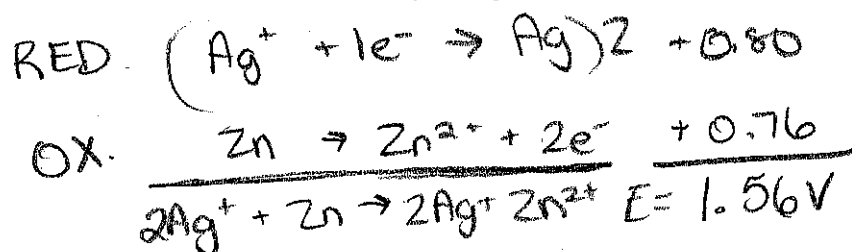 RED. (Ag⁺ + 1e⁻ → Ag)2 +0.80
OX. Zn → Zn²⁺ + 2e⁻ +0.76
2Ag⁺ + Zn → 2Ag + Zn²⁺ E = 1.56V